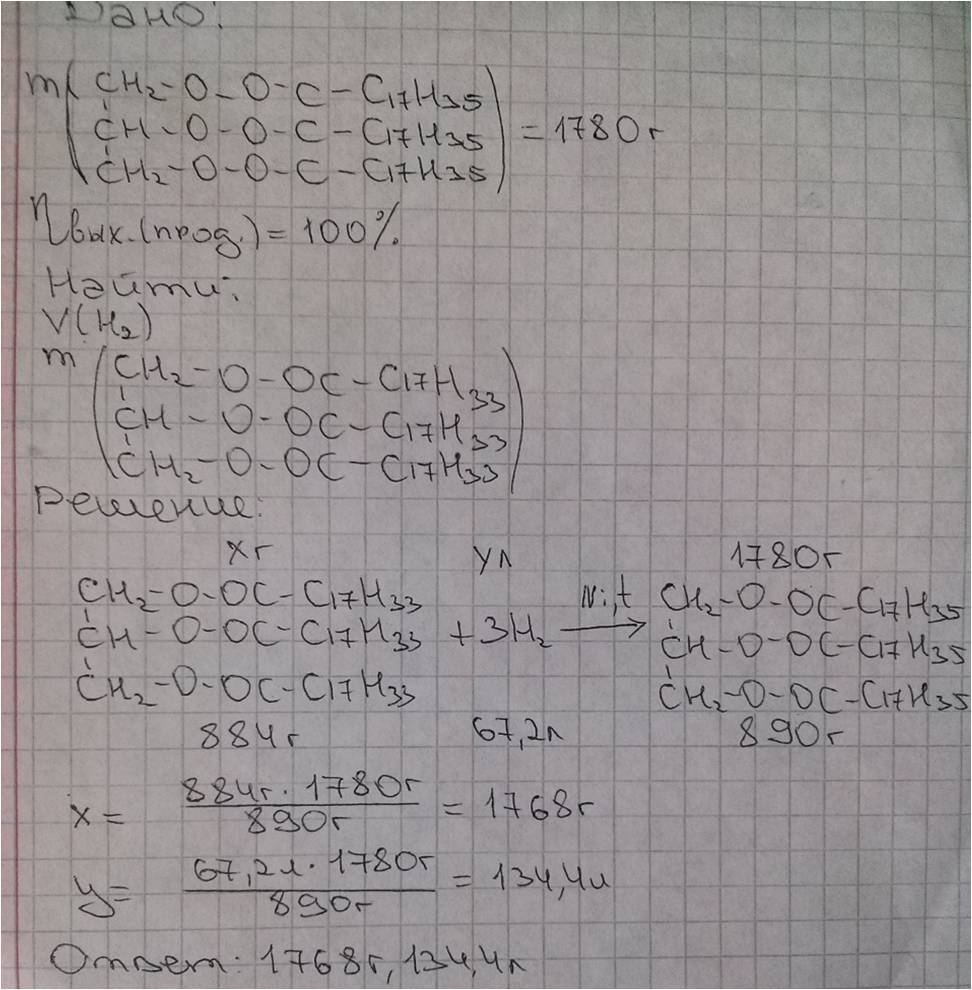 Дано:
m( CH2-O-O-C-C17H35
CH-O-O-C-C17H35 ) = 1780г
CH2-O-O-C-C17H35
ηвых.(прод.) = 100%
Найти:
V(H2)
m ( CH2-O-OC-C17H33
CH-O-OC-C17H33
CH2-O-OC-C17H33 )
Решение:
xг yл 1780г
CH2-O-OC-C17H33 Ni,t CH2-O-OC-C17H35
CH-O-OC-C17H33 + 3H2 → CH-O-OC-C17H35
CH2-O-OC-C17H33 CH2-O-OC-C17H35
884г 67,2л 890г
884г·1780г
x = = 1768г
890г
67,2л·1780г
y = = 134,4л
890г
Ответ: 1768г, 134,4л